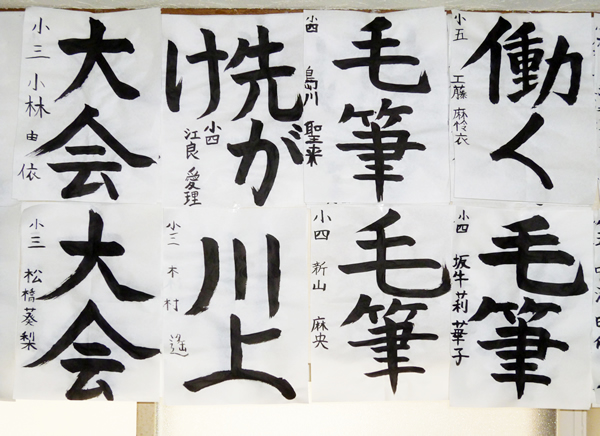 働く
小五 工藤 麻伶衣
毛筆
小四 島川 聖来
先が
け
小四 江良 愛理
大会
小三 小林 由依
毛筆
小四 坂牛 莉華子
毛筆
小四 新山 麻央
川上
小二 木村
大会
小三 松橋 葵梨